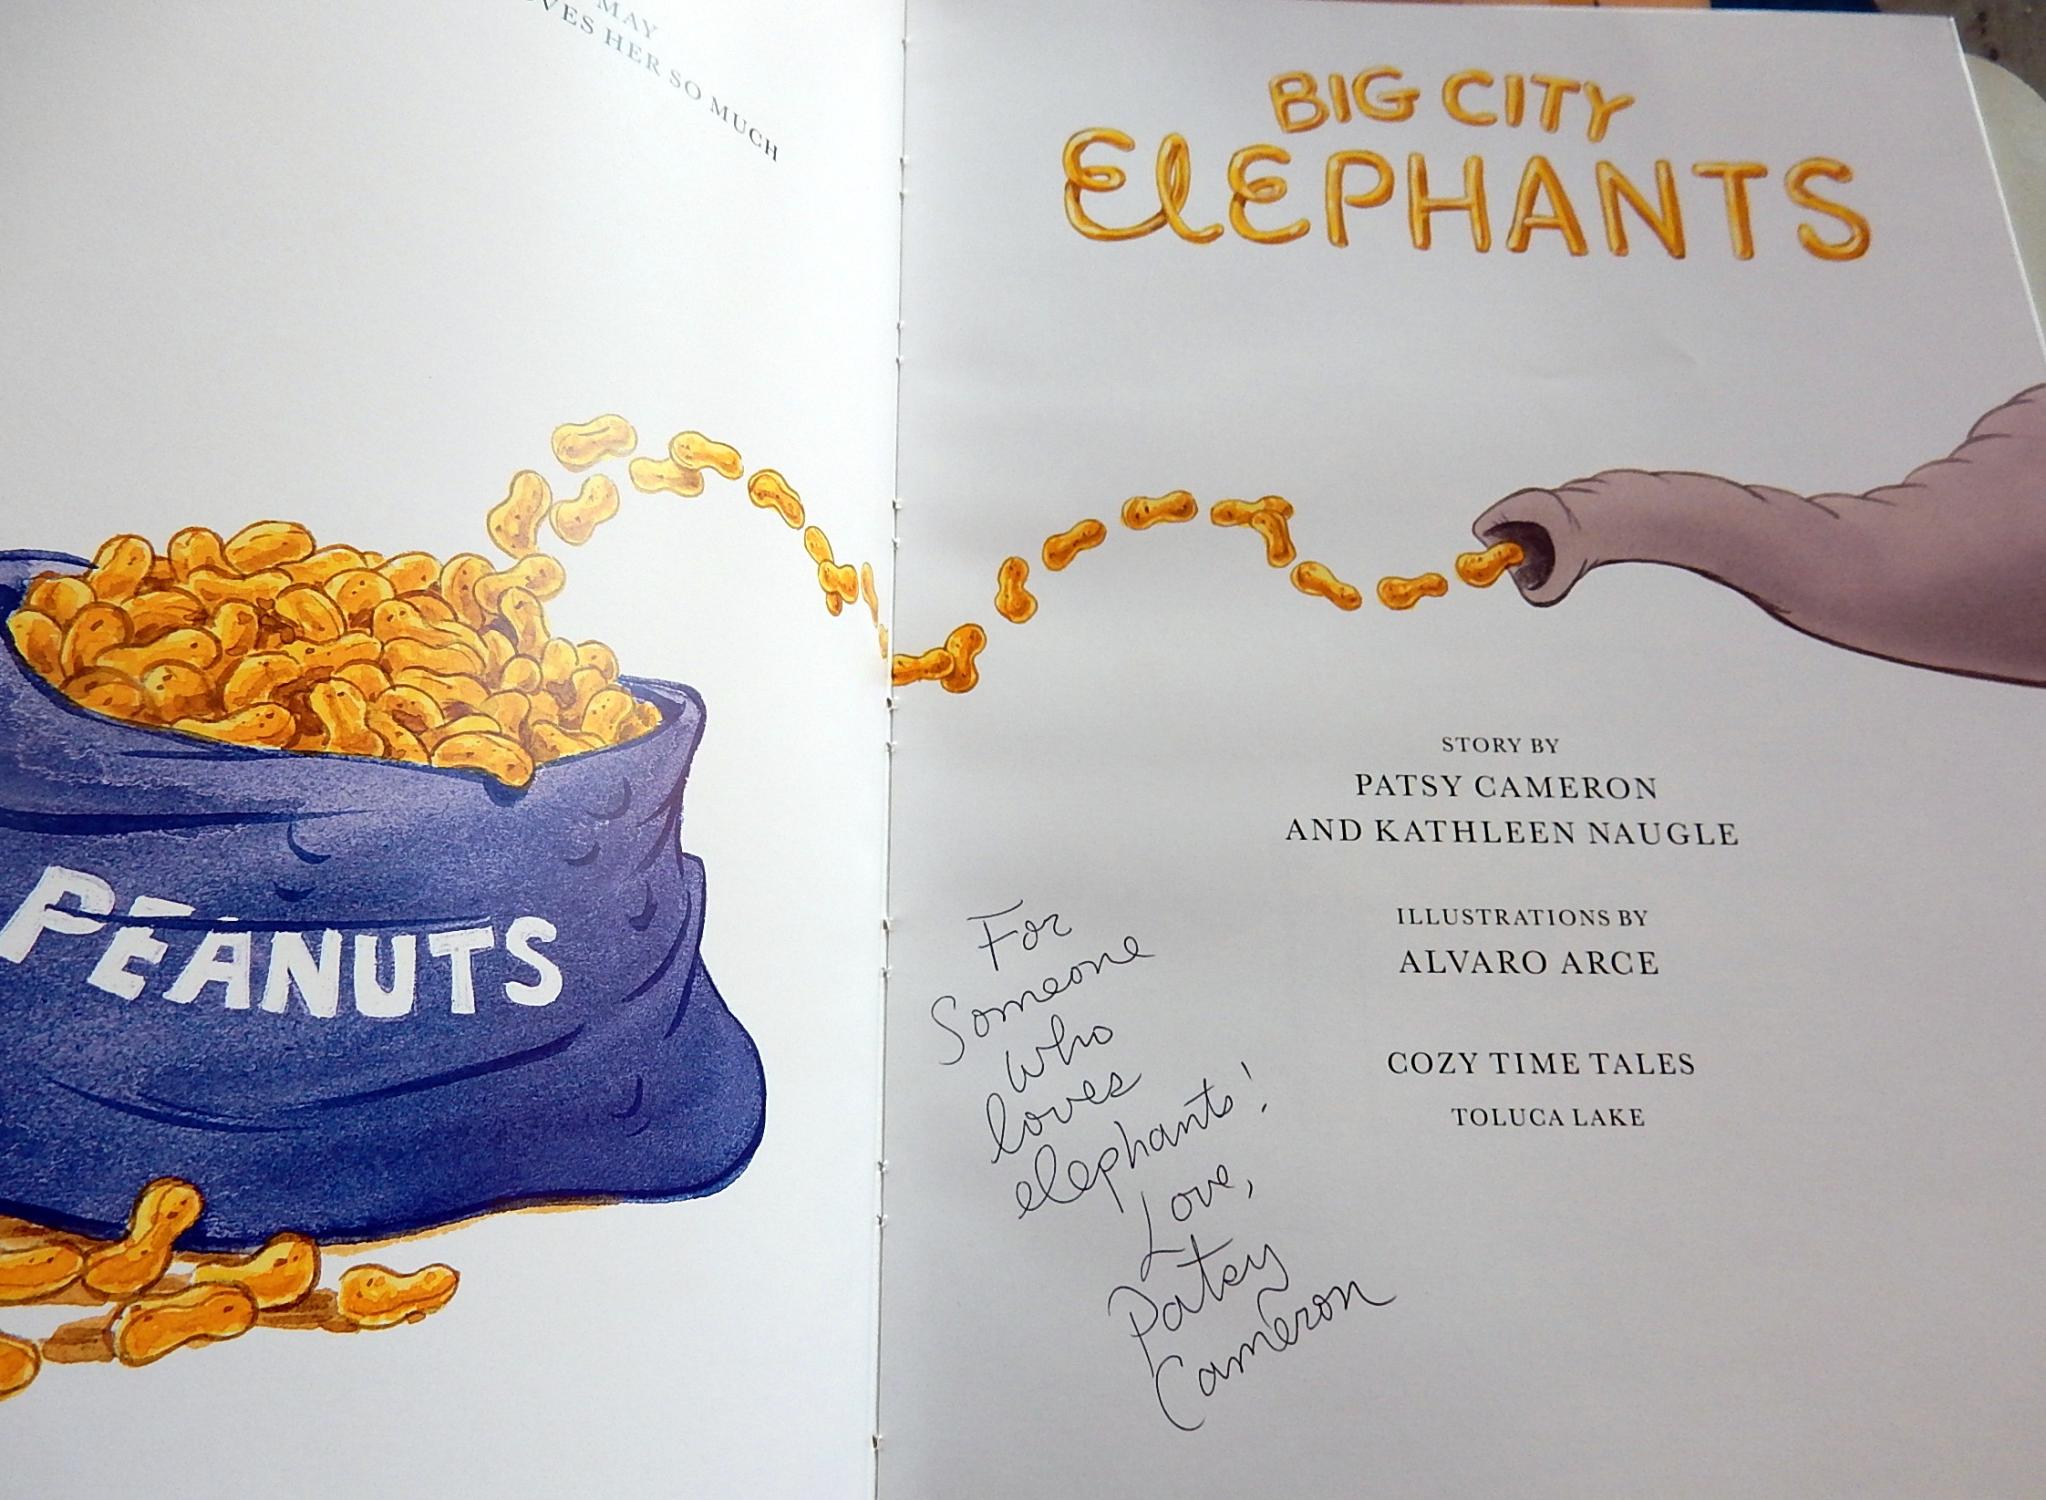 MAY
HER SO MUCH
PEANUTS
BIG CITY
ElEPHANTS
STORY BY
PATSY CAMERON
AND KATHLEEN NAUGLE
ILLUSTRATIONS BY
ALVARO ARCE
COZY TIME TALES
TOLUCA LAKE
For
Someone
who
loves
elephants!
Love,
Patsy
Cameron